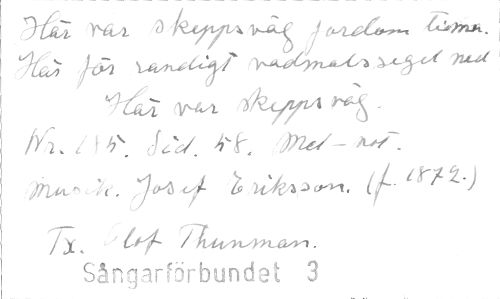 Här var skeppsväg fordom tima.
Här för randigt vadmalssegel ned
Här var skeppsväg.
Nr. 185. Sid. 58. Mel-not.
Musik. Josef Eriksson. (f. 1872.)
Tx. Olof Thunman.
Sångarförbundet 3